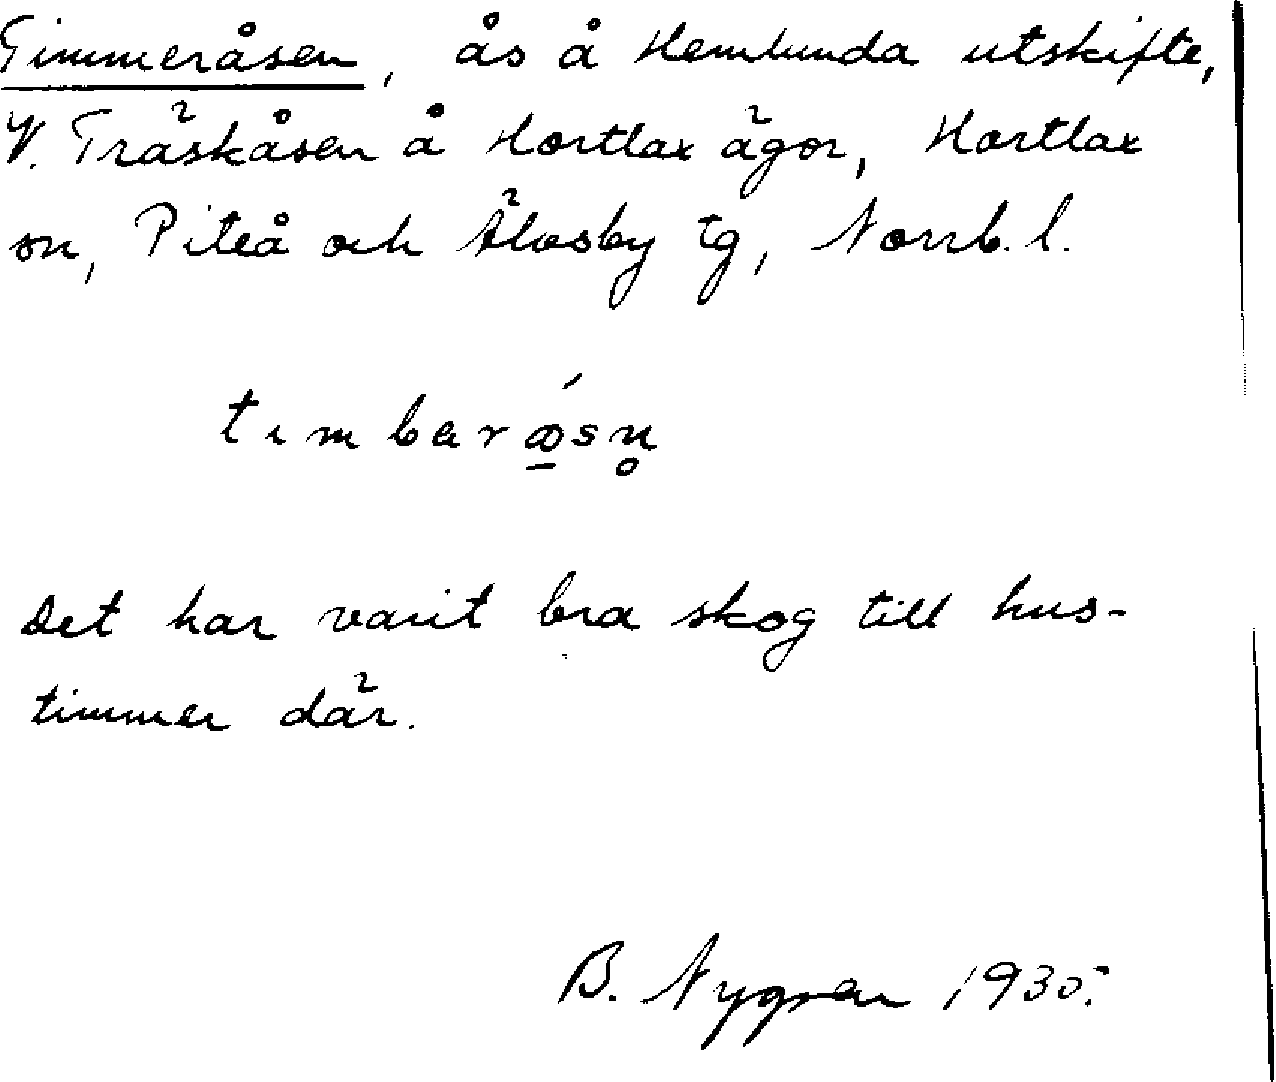 Timmeråsen, ås å Hemlunda utskifte,
V. Träskåsen å Hortlax ägor, Hortlax
sn, Piteå och Älvsby tg, Norrb. l.
tımbarǻsn̥
Det har varit bra skog till hus-
timmer där.
B. Nygren 1930.